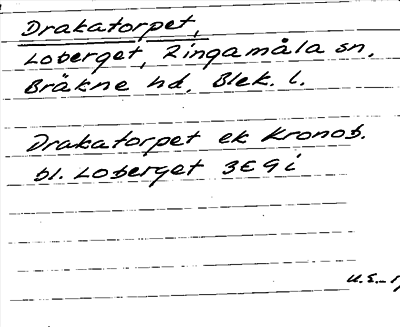 Drakatorpet,
Loberget, Ringamåla sn,
Bräkne hd, Blek. l.
Drakatorpet ek Kronob.
bl. Loberget 3E9i
U.E.